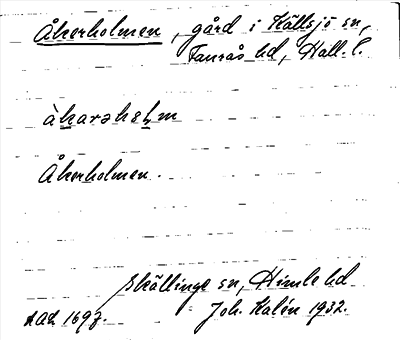 Åkerholmen, gård i Källsjö sn,
Faurås hd, Hall. l.
àkarəhɐḷm
Åkerholmen.
Skällinge sn, Himle hd
Acc. 1697. Joh. Kalén 1932.